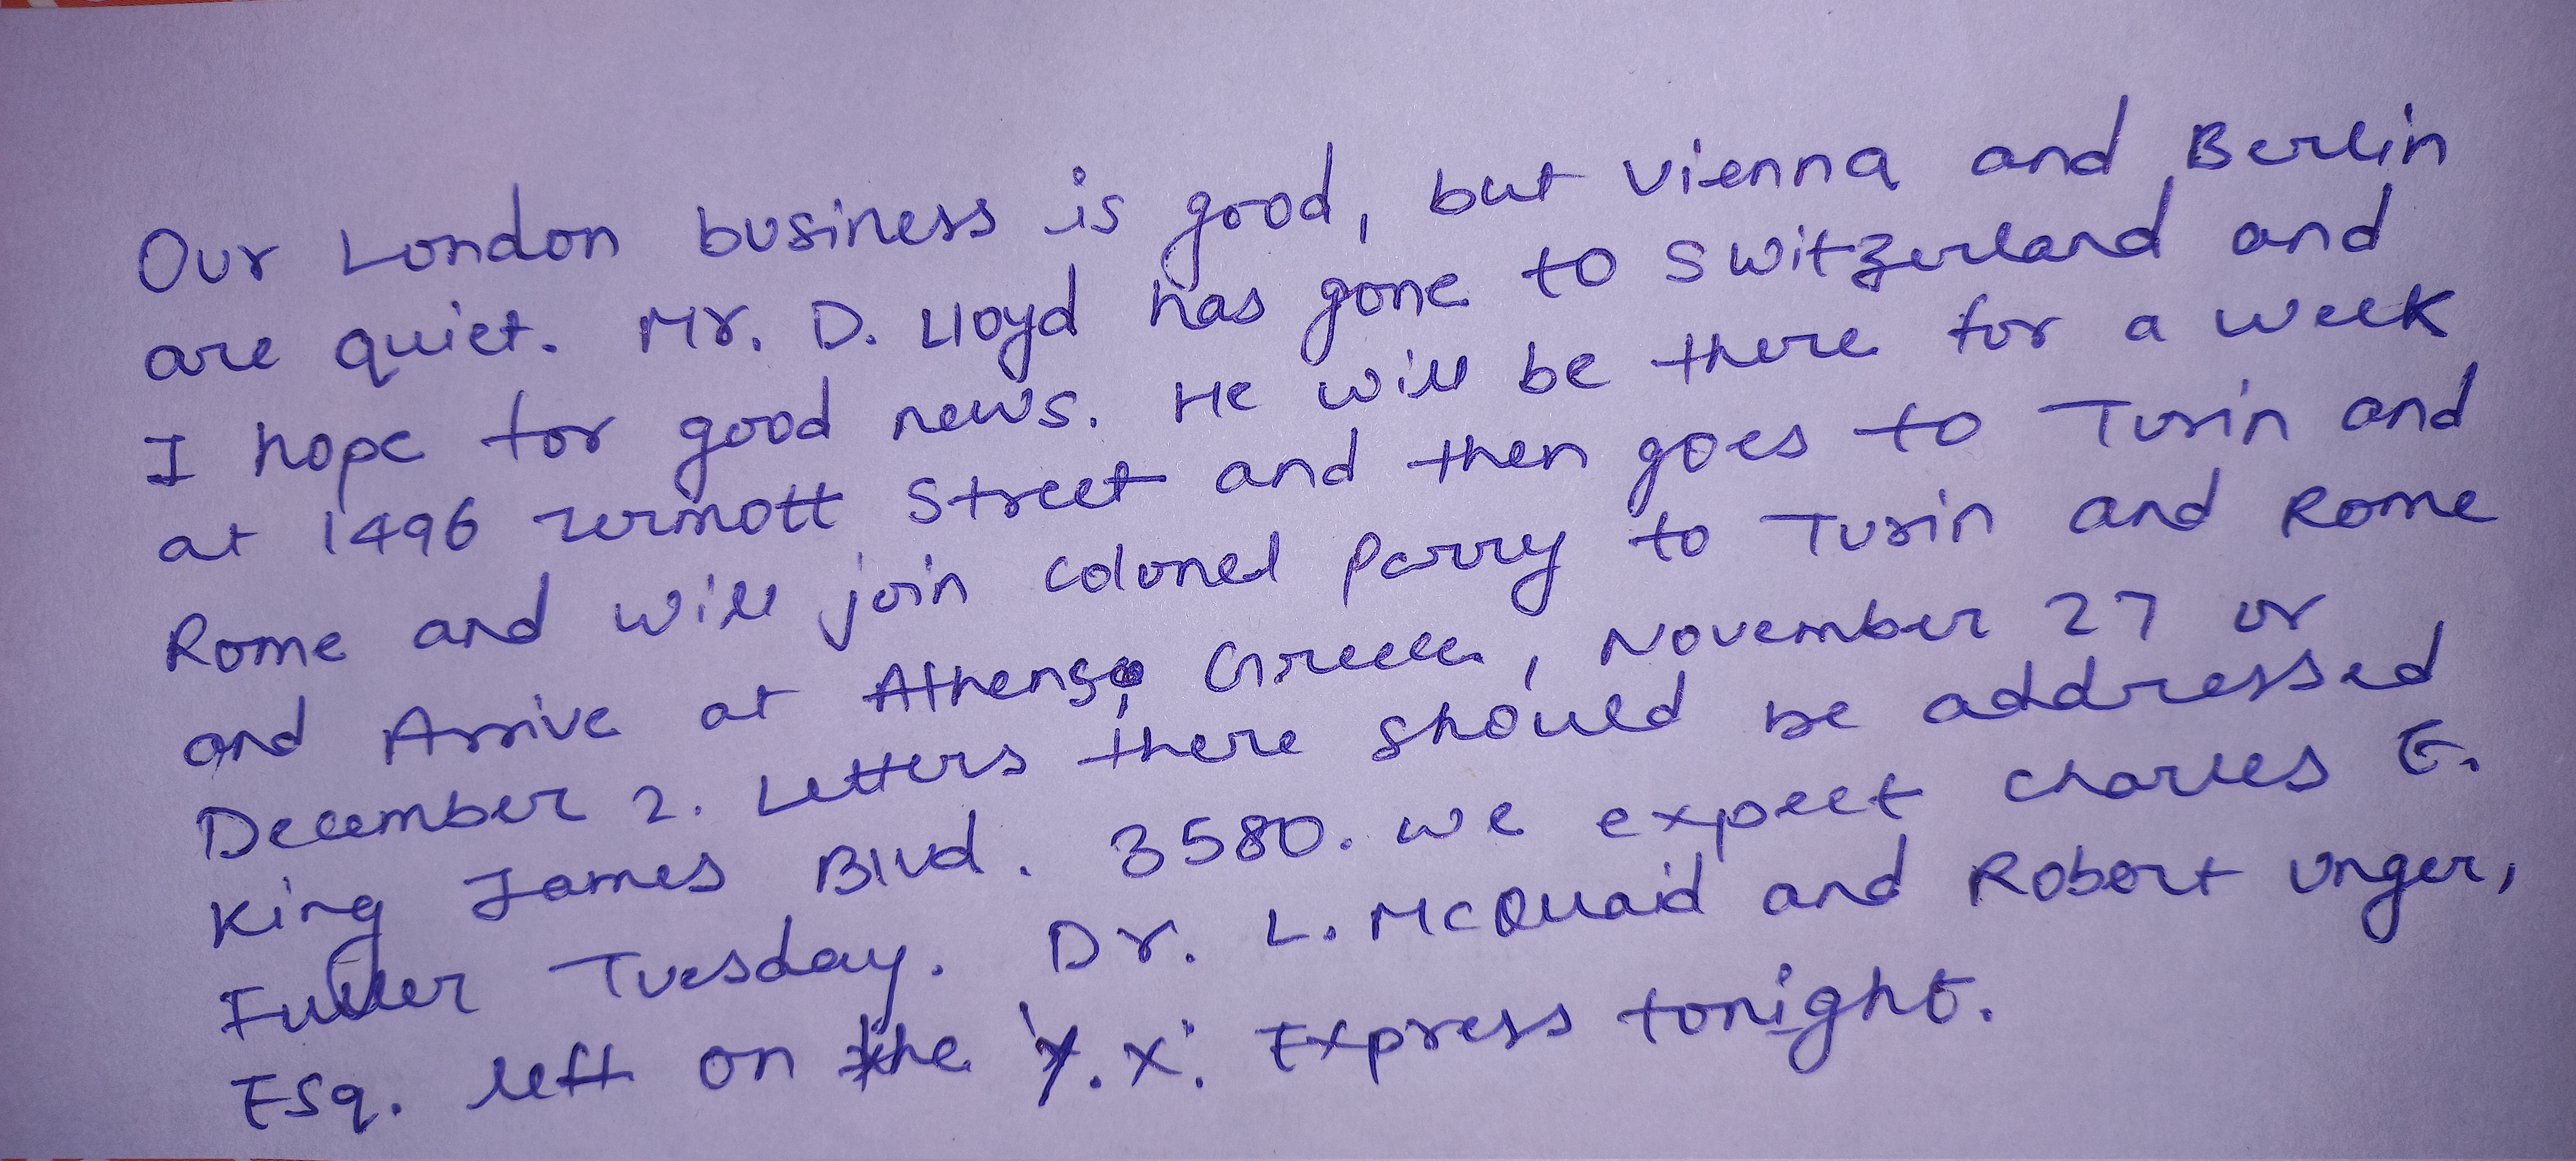 Our London business is good, but vienna and Berlin
are quiet. Mr. D. Lloyd has gone to switzerland and
I hope for good news. He will be there for a week
at 1496 zermott street and then goes to Turin and
Rome and will join colonel parry to Turin and Rome
and Arrive at Athens, Greece, November 27 or
December 2. Letters there should be addressed
King James Blvd. 3580. we expect charles E.
Fuller Tuesday. Dr. L. McQuaid and Robert unger,
Esq. left on the Y.X. Express tonight.